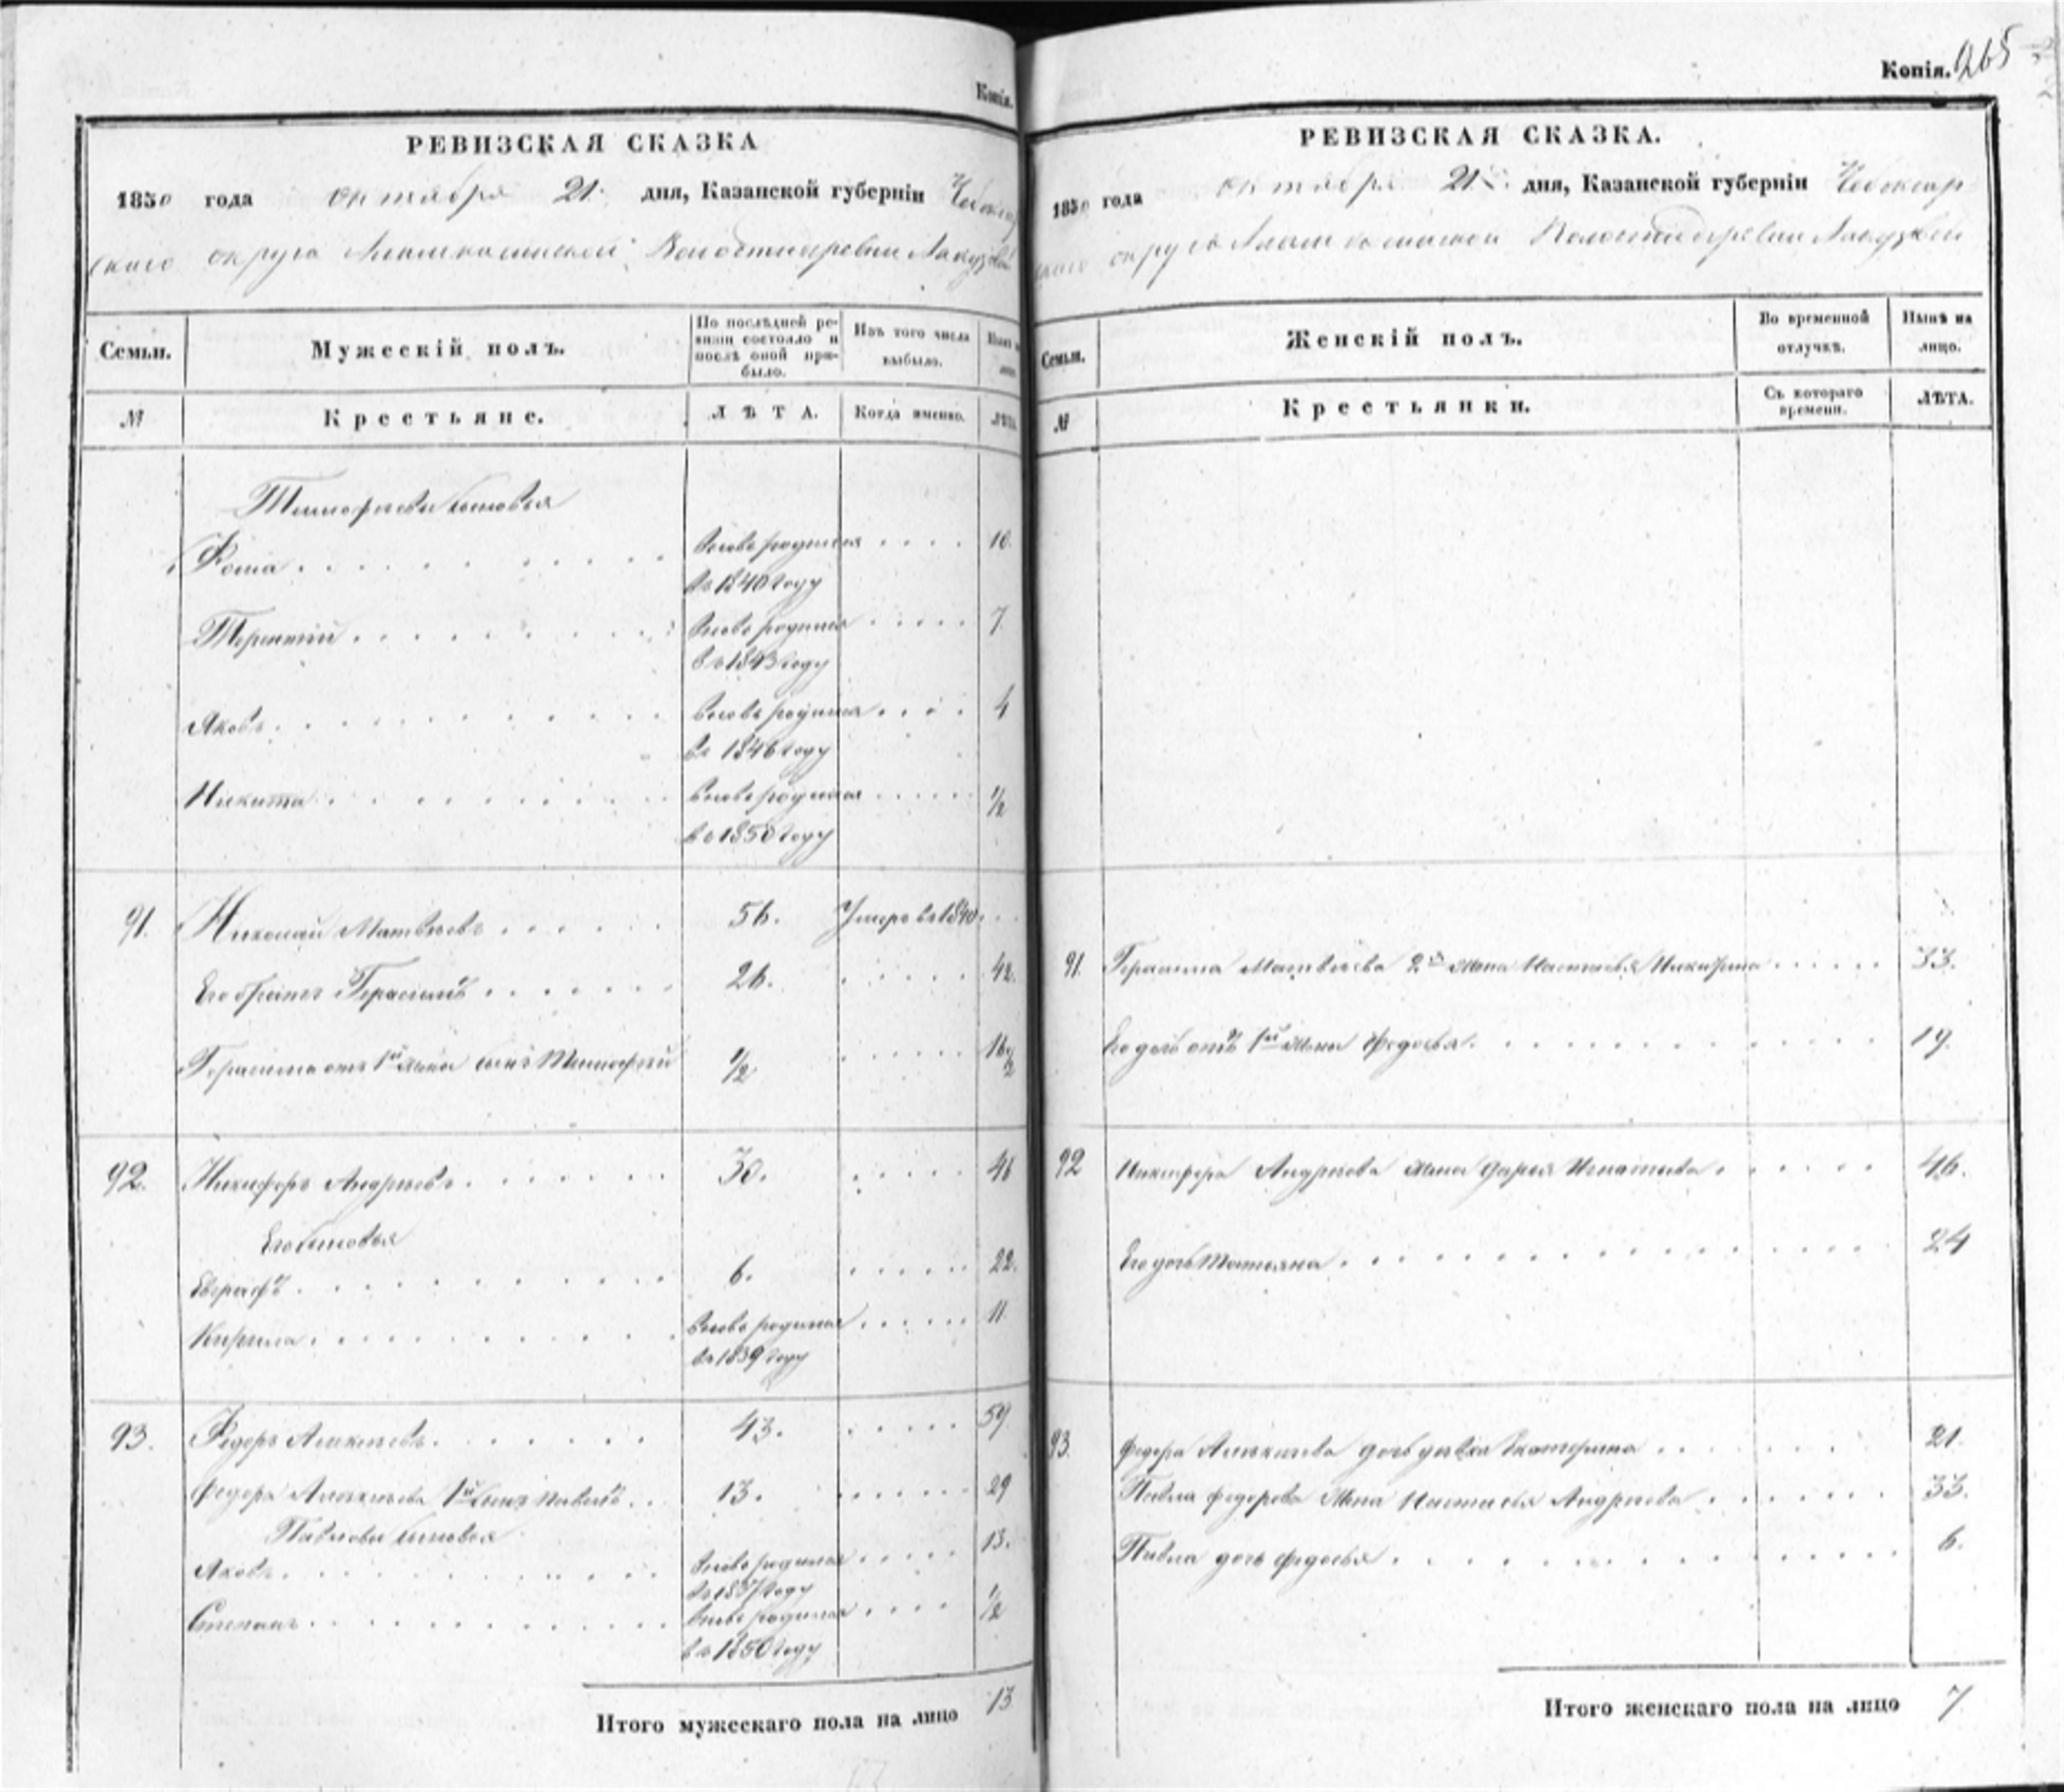 Копія.
РЕВИЗСКАЯ СКАЗКА
1850 года октября 21. дня, Казанской губерніи Чебоксар
скаго округа волости деревни
Семьи.
Мужескій полъ.
По послѣдней ре-
визіи состояло и
послѣ оной при-
было.
Изъ того числа
выбыло.
Нынѣ на
лицо.
№
Крестьяне.
ЛѢТА.
Когда именно.
ЛѢТА.
Тимофеевы сыновья
Фома . . . . . . . . вновь родился . . . . 10.
въ 1840 году
Терентий . . . . . . . . вновь родился . . . . . 7.
въ 1843 году
Яковъ . . . . . . . . . вновь родился . . . . 4
въ 1846 году
Никита . . . . . . . . вновь родился . . . . . 1/2
въ 1850 году
91. Николай Матвеевъ . . . . . . 56. Умеръ въ 1840. . .
Его братъ Герасимъ . . . . . . . 26. . . . . . 42.
Герасима отъ 1й жены сынъ Тимофей 1/2 . . . . . 16 1/2
92. Никифоръ Андреевъ . . . . . . . 30. . . . . . 46
Его сыновья
Евграфъ . . . . . . . . 6. . . . . . 22.
Кирила . . . . . . . . . вновь родился . . . . . 11.
въ 1839 году
93. Федоръ Алексеевъ . . . . . . 43. . . . . . 59
Федора Алексеева 1й сынъ Павелъ . . . 13. . . . . . 29
Павловы сыновья
Яковъ . . . . . . . . вновь родился . . . . . 13.
въ 1837 году
Степанъ . . . . . . . . . вновь родился . . . . 1/2
въ 1850 году
Итого мужескаго пола на лицо 13
Копія. 265
РЕВИЗСКАЯ СКАЗКА.
1850 года октября 21. дня, Казанской губерніи Чебоксар
скаго округа волости деревни
Семьи.
Женскій полъ.
Во временной
отлучкѣ.
Нынѣ на
лицо.
№
Крестьянки.
Съ котораго
времени.
ЛѢТА.
91. Герасима Матвеева 2я жена Настасья . . . . . 33.
Его дочь отъ 1й жены Федосья . . . . . . . . . 19.
92 Никифора Андреева жена Дарья Игнатьева . . . . . 46.
Его дочь Татьяна . . . . . . . . . . . . . 24
93. Федора Алексеева дочь девка Екатерина . . . . . 21.
Павла Федорова жена Настасья Андреева . . . . . . 33.
Павла дочь Федосья . . . . . . . . . . . 6.
Итого женскаго пола на лицо 7